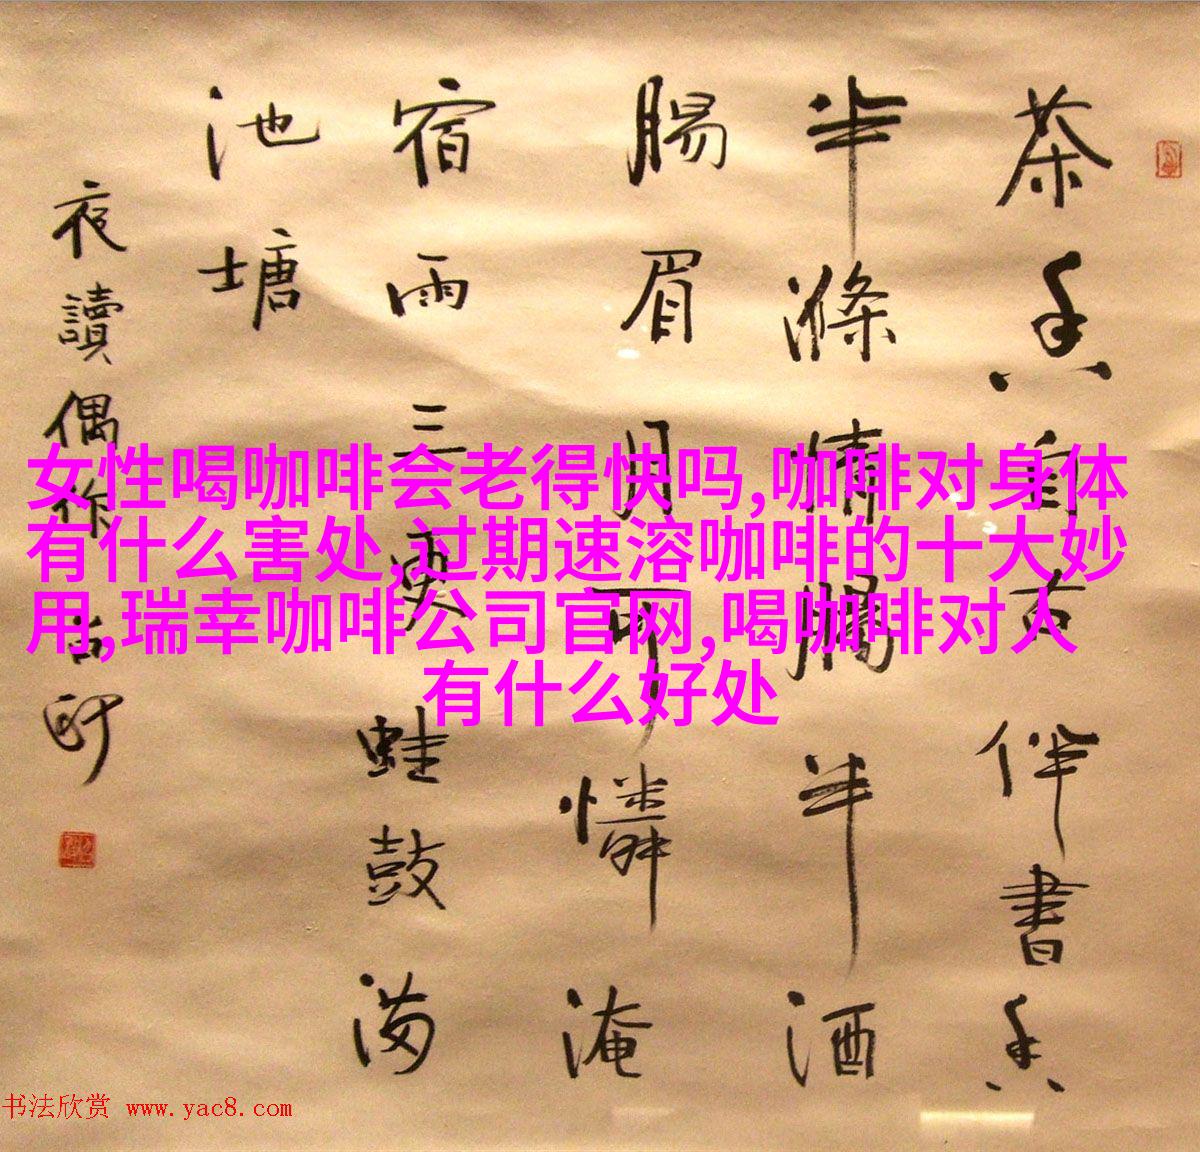 茶香自古伴書香
半滌情半酒
腸眉月可憐淹
宿雨三更蛙鼓滿
池塘
夜讀偶作
女性喝咖啡会老得快吗,咖啡对身体
有什么害处,过期速溶咖啡的十大妙
用,瑞幸咖啡公司官网,喝咖啡对人
有什么好处
书法欣赏 www.yac8.com